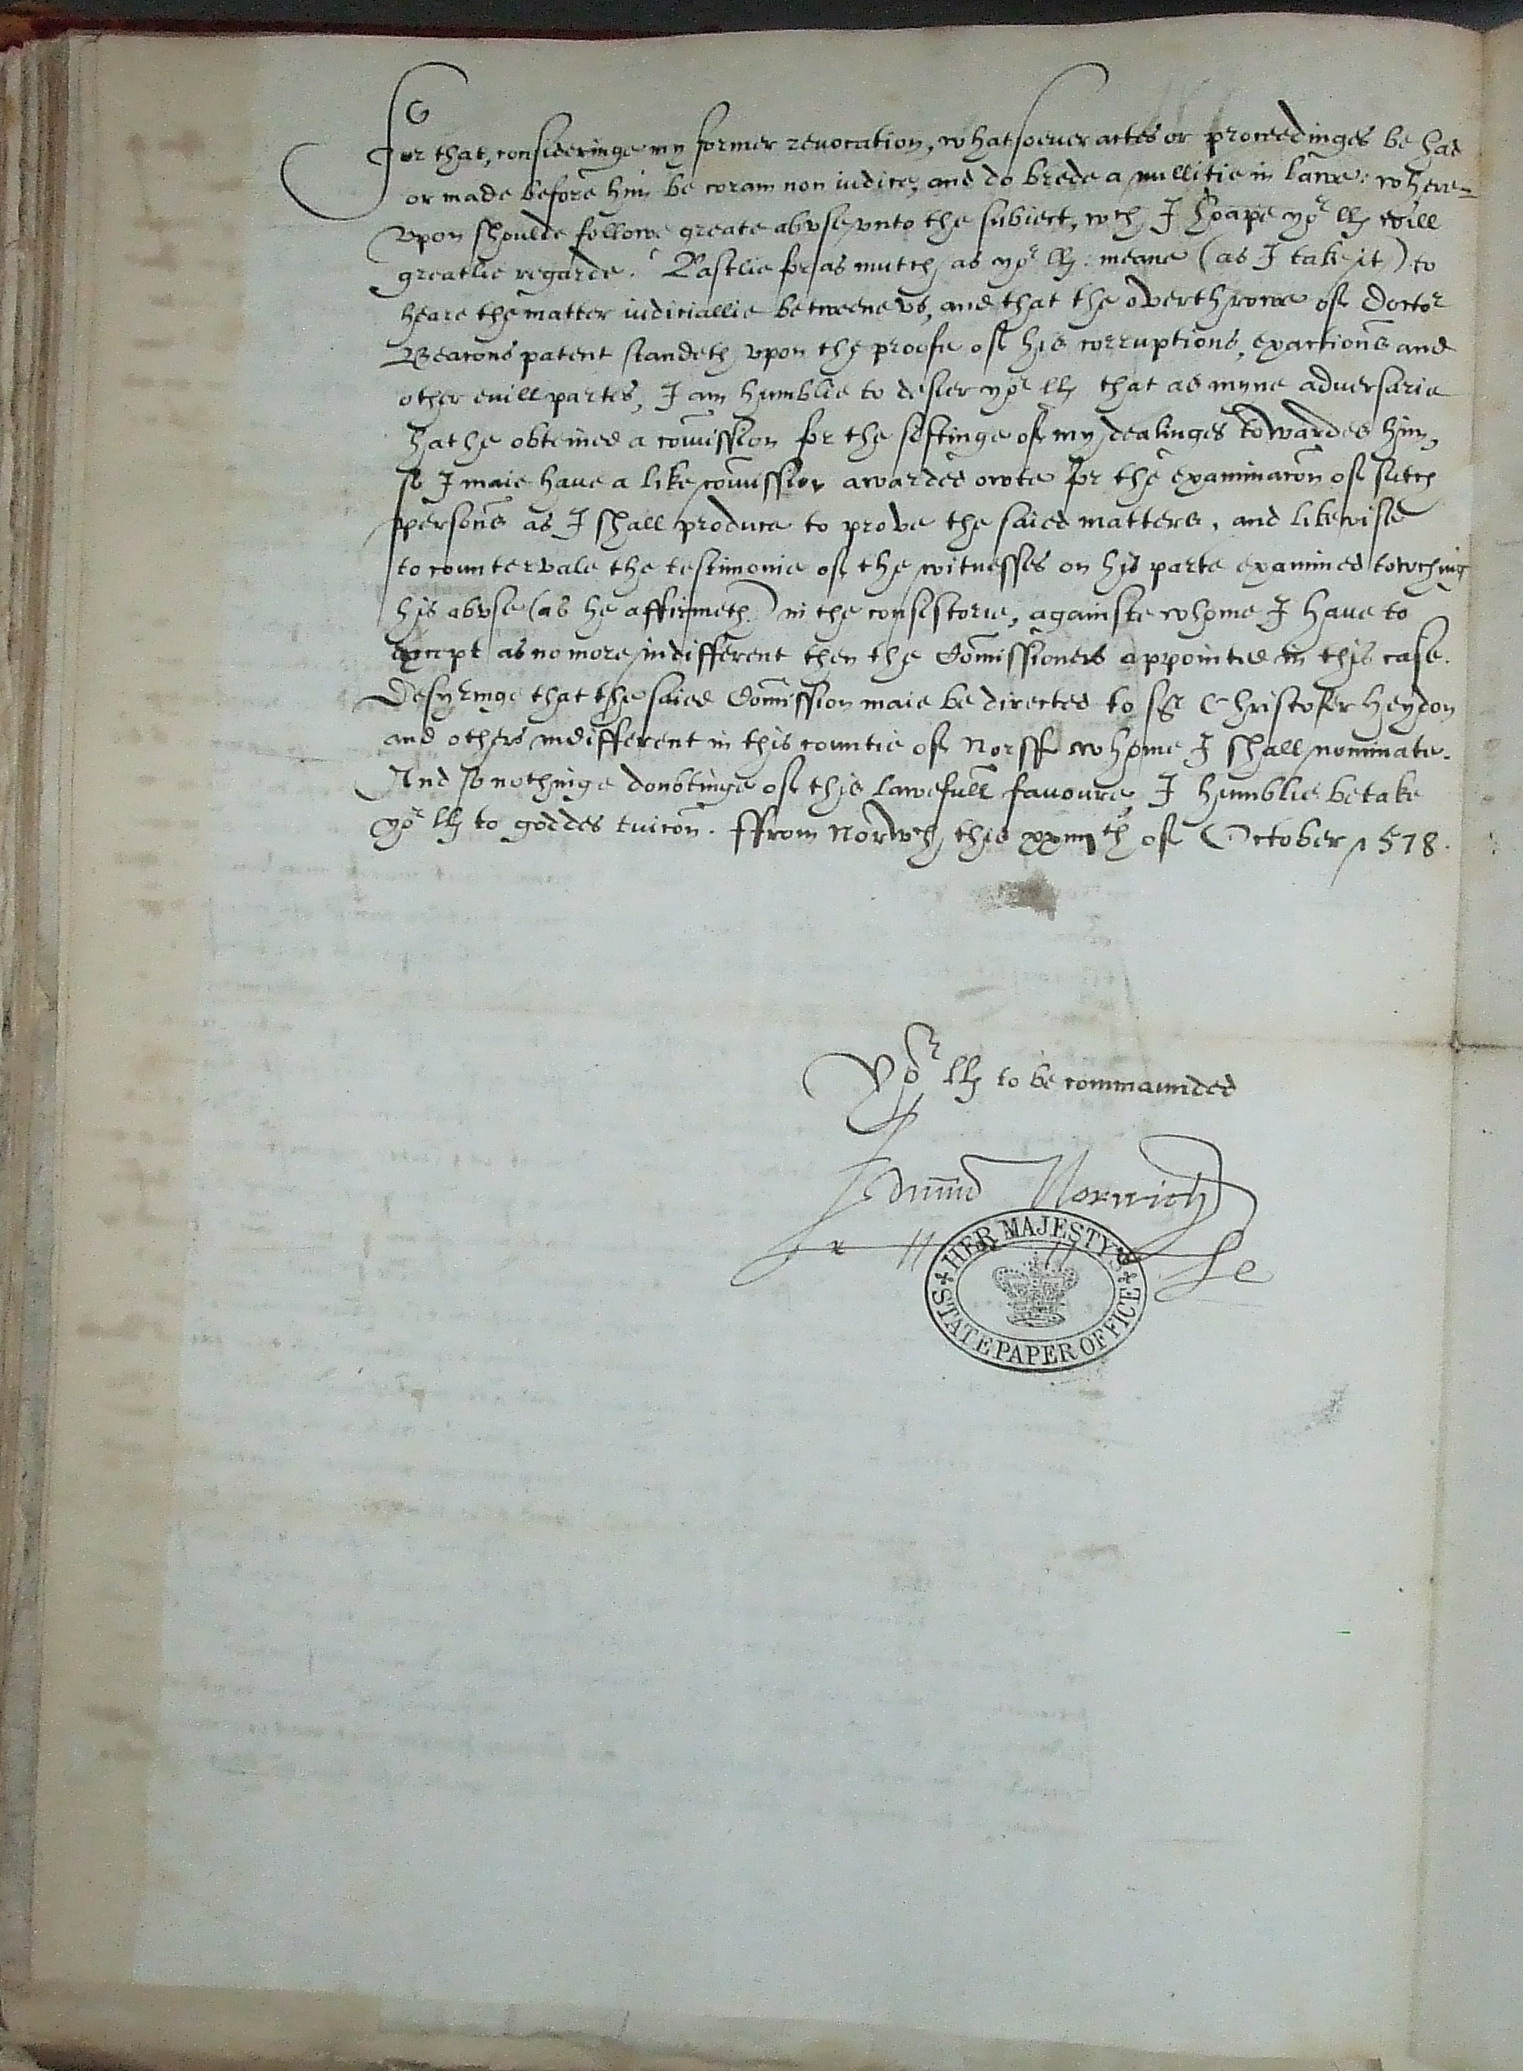 For that, consideringe my former revocation, whatsoever actes or proceedinges be had
or made before him be coram non iudice, and do brede a nullitie in lawe: where=
vpon shoulde followe greate abvse vnto the subiect, wch I hoape yor ll will
greatlie regarde. Lastlie for as mutch as yor ll: meane (as I take it) to
heare the matter iudiciallie betweene vs, and that the overthrowe of Doctor
Beacons patent standeth vpon the proofe of his corruptions, exactions and
other euill partes, I am humblie to desier yor ll that as myne adversarie
hathe obteined a comission for the siftinge of my dealinges towardes him,
so I maie have a like comission awarded owte for the examinacon of sutch
persons as I shall produce to prove the saied matters, and likewise
to countervale the testimonie of the witnesses on his parte examined towching
his abvse (as he affirmeth) in the consistorie, againste whome I have to
except as no more indifferent then the Comissioners appointed in this case.
Desyringe that the saied Comission maie be directed to Sr Christofer Heydon
and others indifferent in this countie of Norff whome I shall nominate.
And so nothinge doubtinge of this lawefull favoure, I humblie betake
yor ll to goddes tuicon. ffrom Norwch this xxiiijth of October 1578.
Yor ll to be commaunded
Edmund Norwich
HER MAJESTY'S
STATE PAPER OFFICE